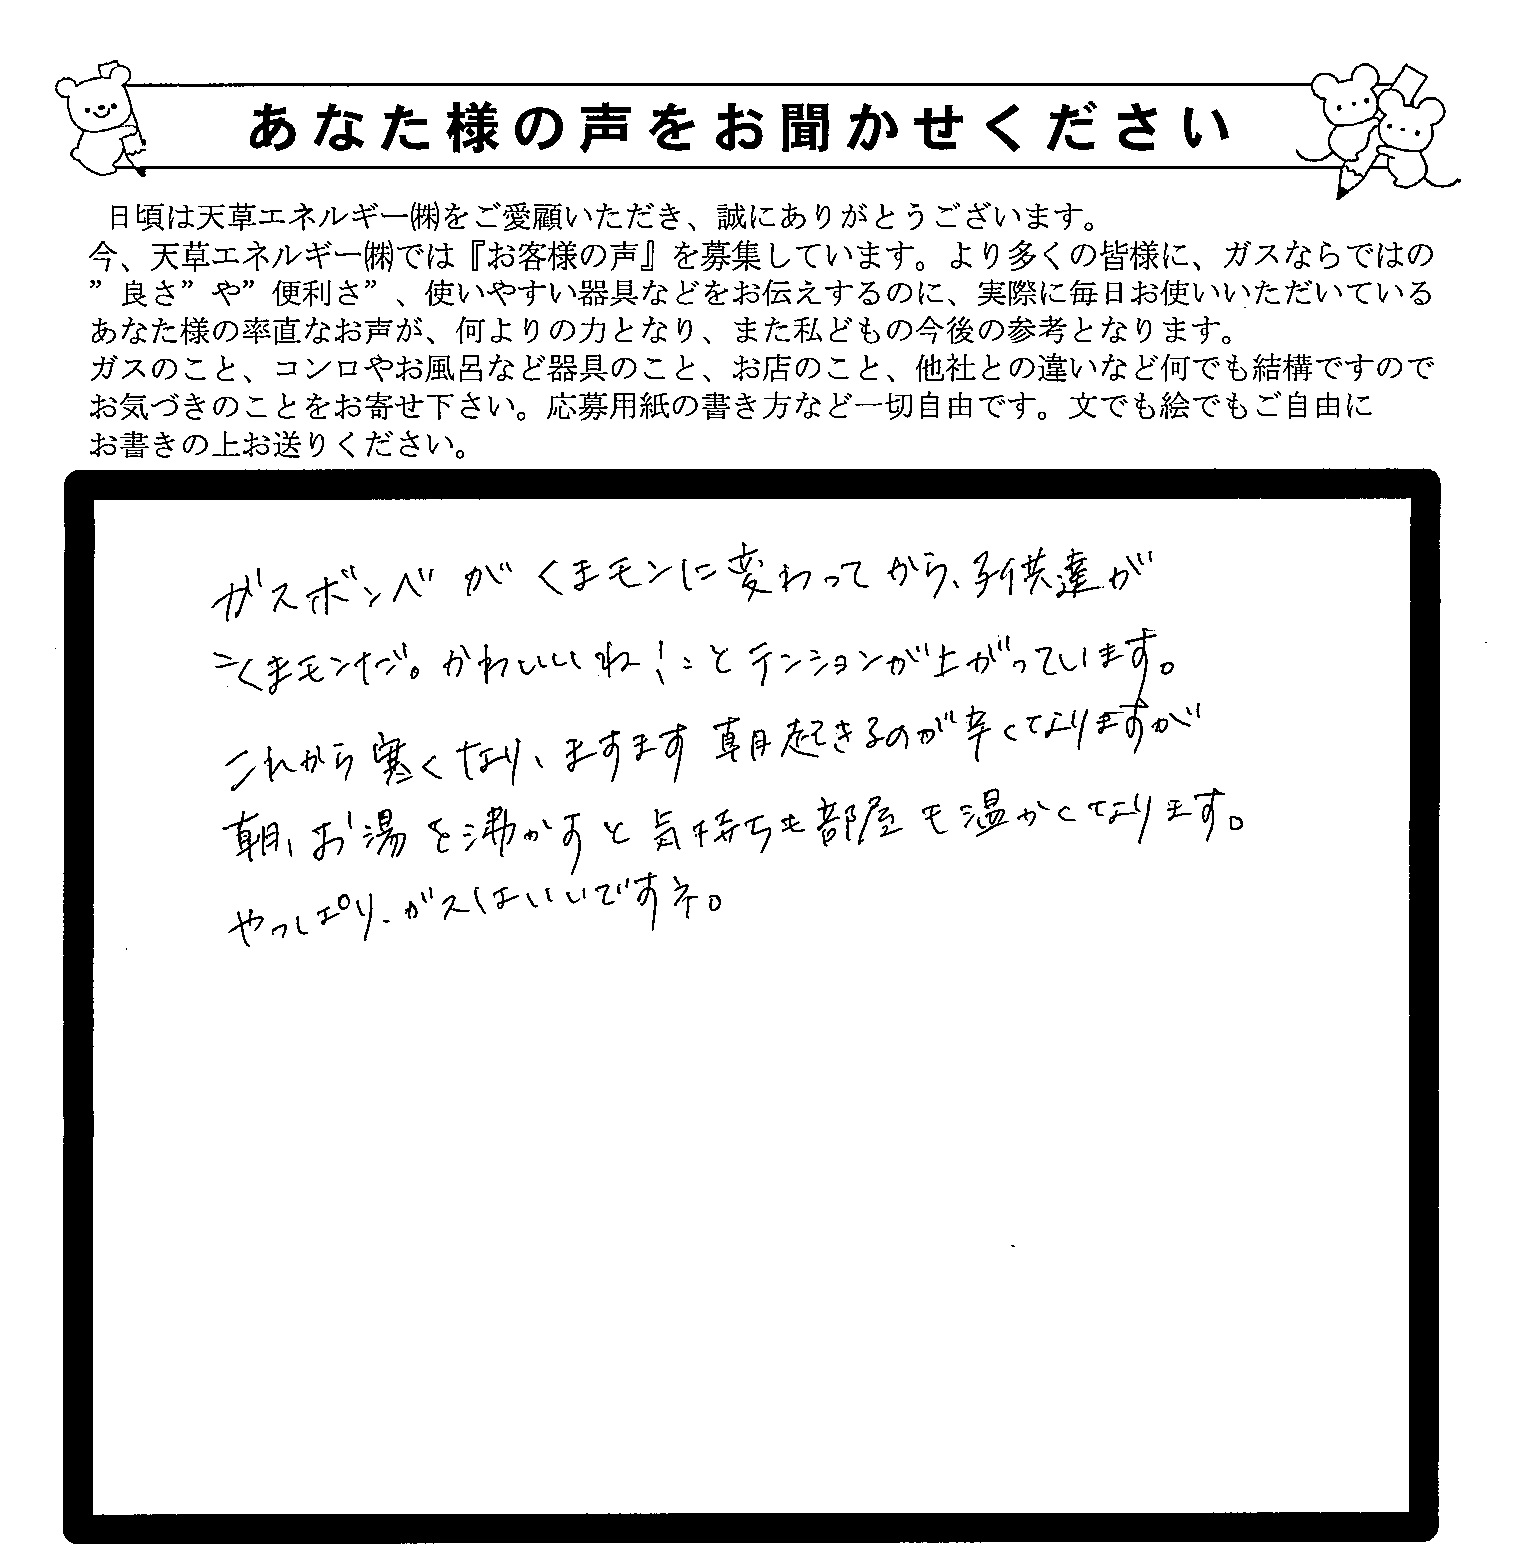 あなた様の声をお聞かせください
日頃は天草エネルギー㈱をご愛顧いただき、誠にありがとうございます。
今、天草エネルギー㈱では『お客様の声』を募集しています。より多くの皆様に、ガスならではの
”良さ”や”便利さ”、使いやすい器具などをお伝えするのに、実際に毎日お使いいただいている
あなた様の率直なお声が、何よりの力となり、また私どもの今後の参考となります。
ガスのこと、コンロやお風呂など器具のこと、お店のこと、他社との違いなど何でも結構ですので
お気づきのことをお寄せ下さい。応募用紙の書き方など一切自由です。文でも絵でもご自由に
お書きの上お送りください。
ガスボンベがくまモンに変わってから、子供達が
〝くまモンだ。かわいいね！〟とテンションが上がっています。
これから寒くなり、ますます朝起きるのが辛くなりますが
朝、お湯を沸かすと気持ちも部屋も温かくなります。
やっぱり、ガスはいいですネ。